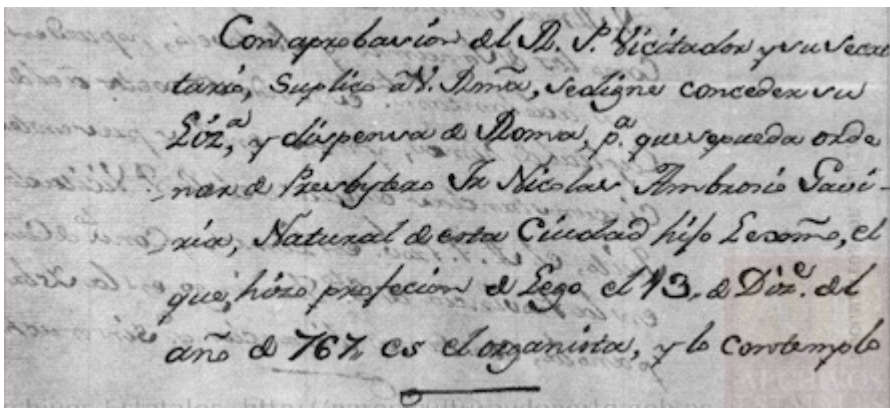 Con aprobasion del R. P. Vicitador y su Secre
tario, Suplico a V. Rmã, se digne conceder su
Liz.ª, y dispensa de Roma, p.ª que se pueda orde
nar de Presbytero Fr Nicolas Ambrosio Gavi-
ria, Natural de esta Ciudad hijo Lexmo, el
que, hizo profecion de Lego el 13. de Diz.e del
año de 767 es el organista, y lo contemplo